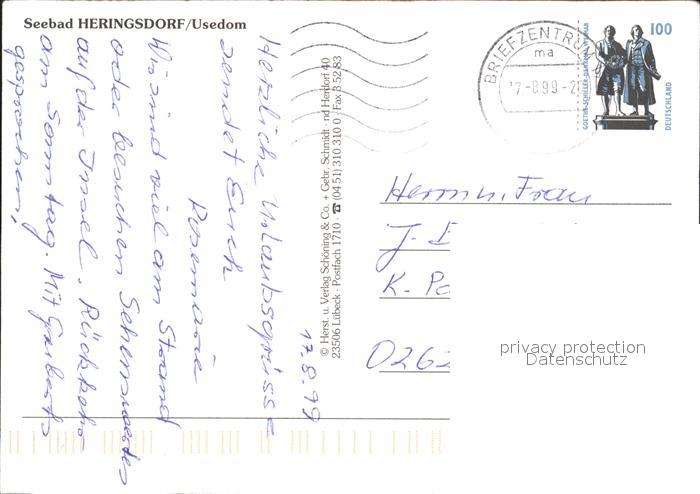 Seebad HERINGSDORF/Usedom
17.8.99
Herzliche Urlaubsgrüsse
sendet Euch
Rosemarie
Wir sind viel am Strand
oder besuchen Sehenswertes
auf der Insel. Rückkehr
am Sonntag. Mit
gesprochen!
© Herst. u. Verlag Schöning & Co. + Gebr. Schmidt · nd Herdorf 40
23506 Lübeck · Postfach 1710 · ☎ (04 51) 310 310 0 · Fax 3 52 83
BRIEFZENTRUM
ma
17-8.99-2
GOETHE-SCHILLER-DENKMAL WEIMAR
100
DEUTSCHLAND
Herrn u. Frau
J.
K.
0262
privacy protection
Datenschutz